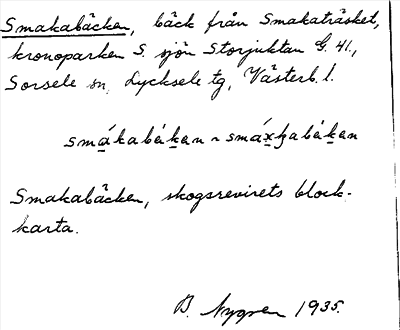 Smakabäcken, bäck från Smakaträsket,
kronoparken S. sjön Storjuktan G. 41,
Sorsele sn, Lycksele tg, Västerb. l.
smákabèken ~ smáx̱ʒabèken
Smakabäcken, skogsrevirets block-
karta.
B. Nygren 1935.